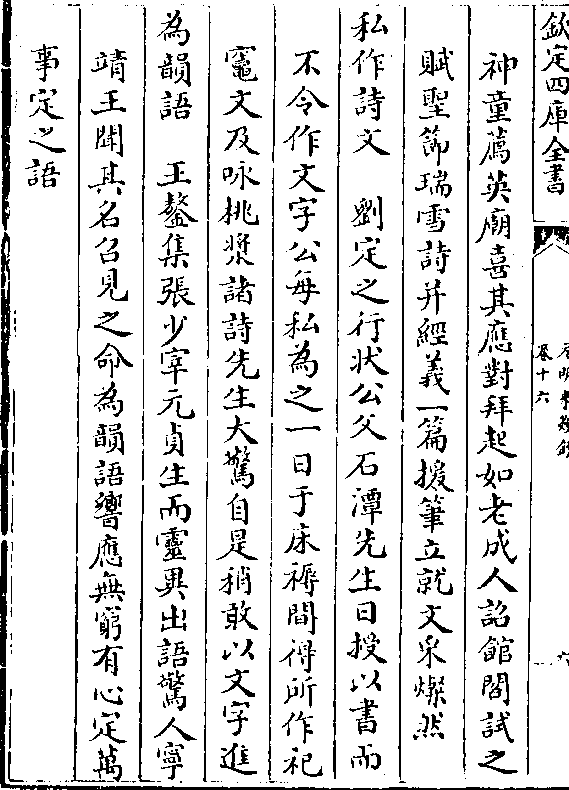 欽定四庫全書
卷十六
神童薦英廟喜其應對拜起如老成人詔館閣試之
賦聖節瑞雪詩并經義一篇援筆立就文采燦然
私作詩文　劉定之行狀公父石潭先生日授以書而
不令作文字公每私為之一日于床褥間得所作祀
竈文及咏桃漿諸詩先生大驚自是稍敢以文字進
為韻語　王鏊集張少宰元貞生而靈異出語驚人寧
靖王聞其名召見之命為韻語響應無窮有心定萬
事定之語